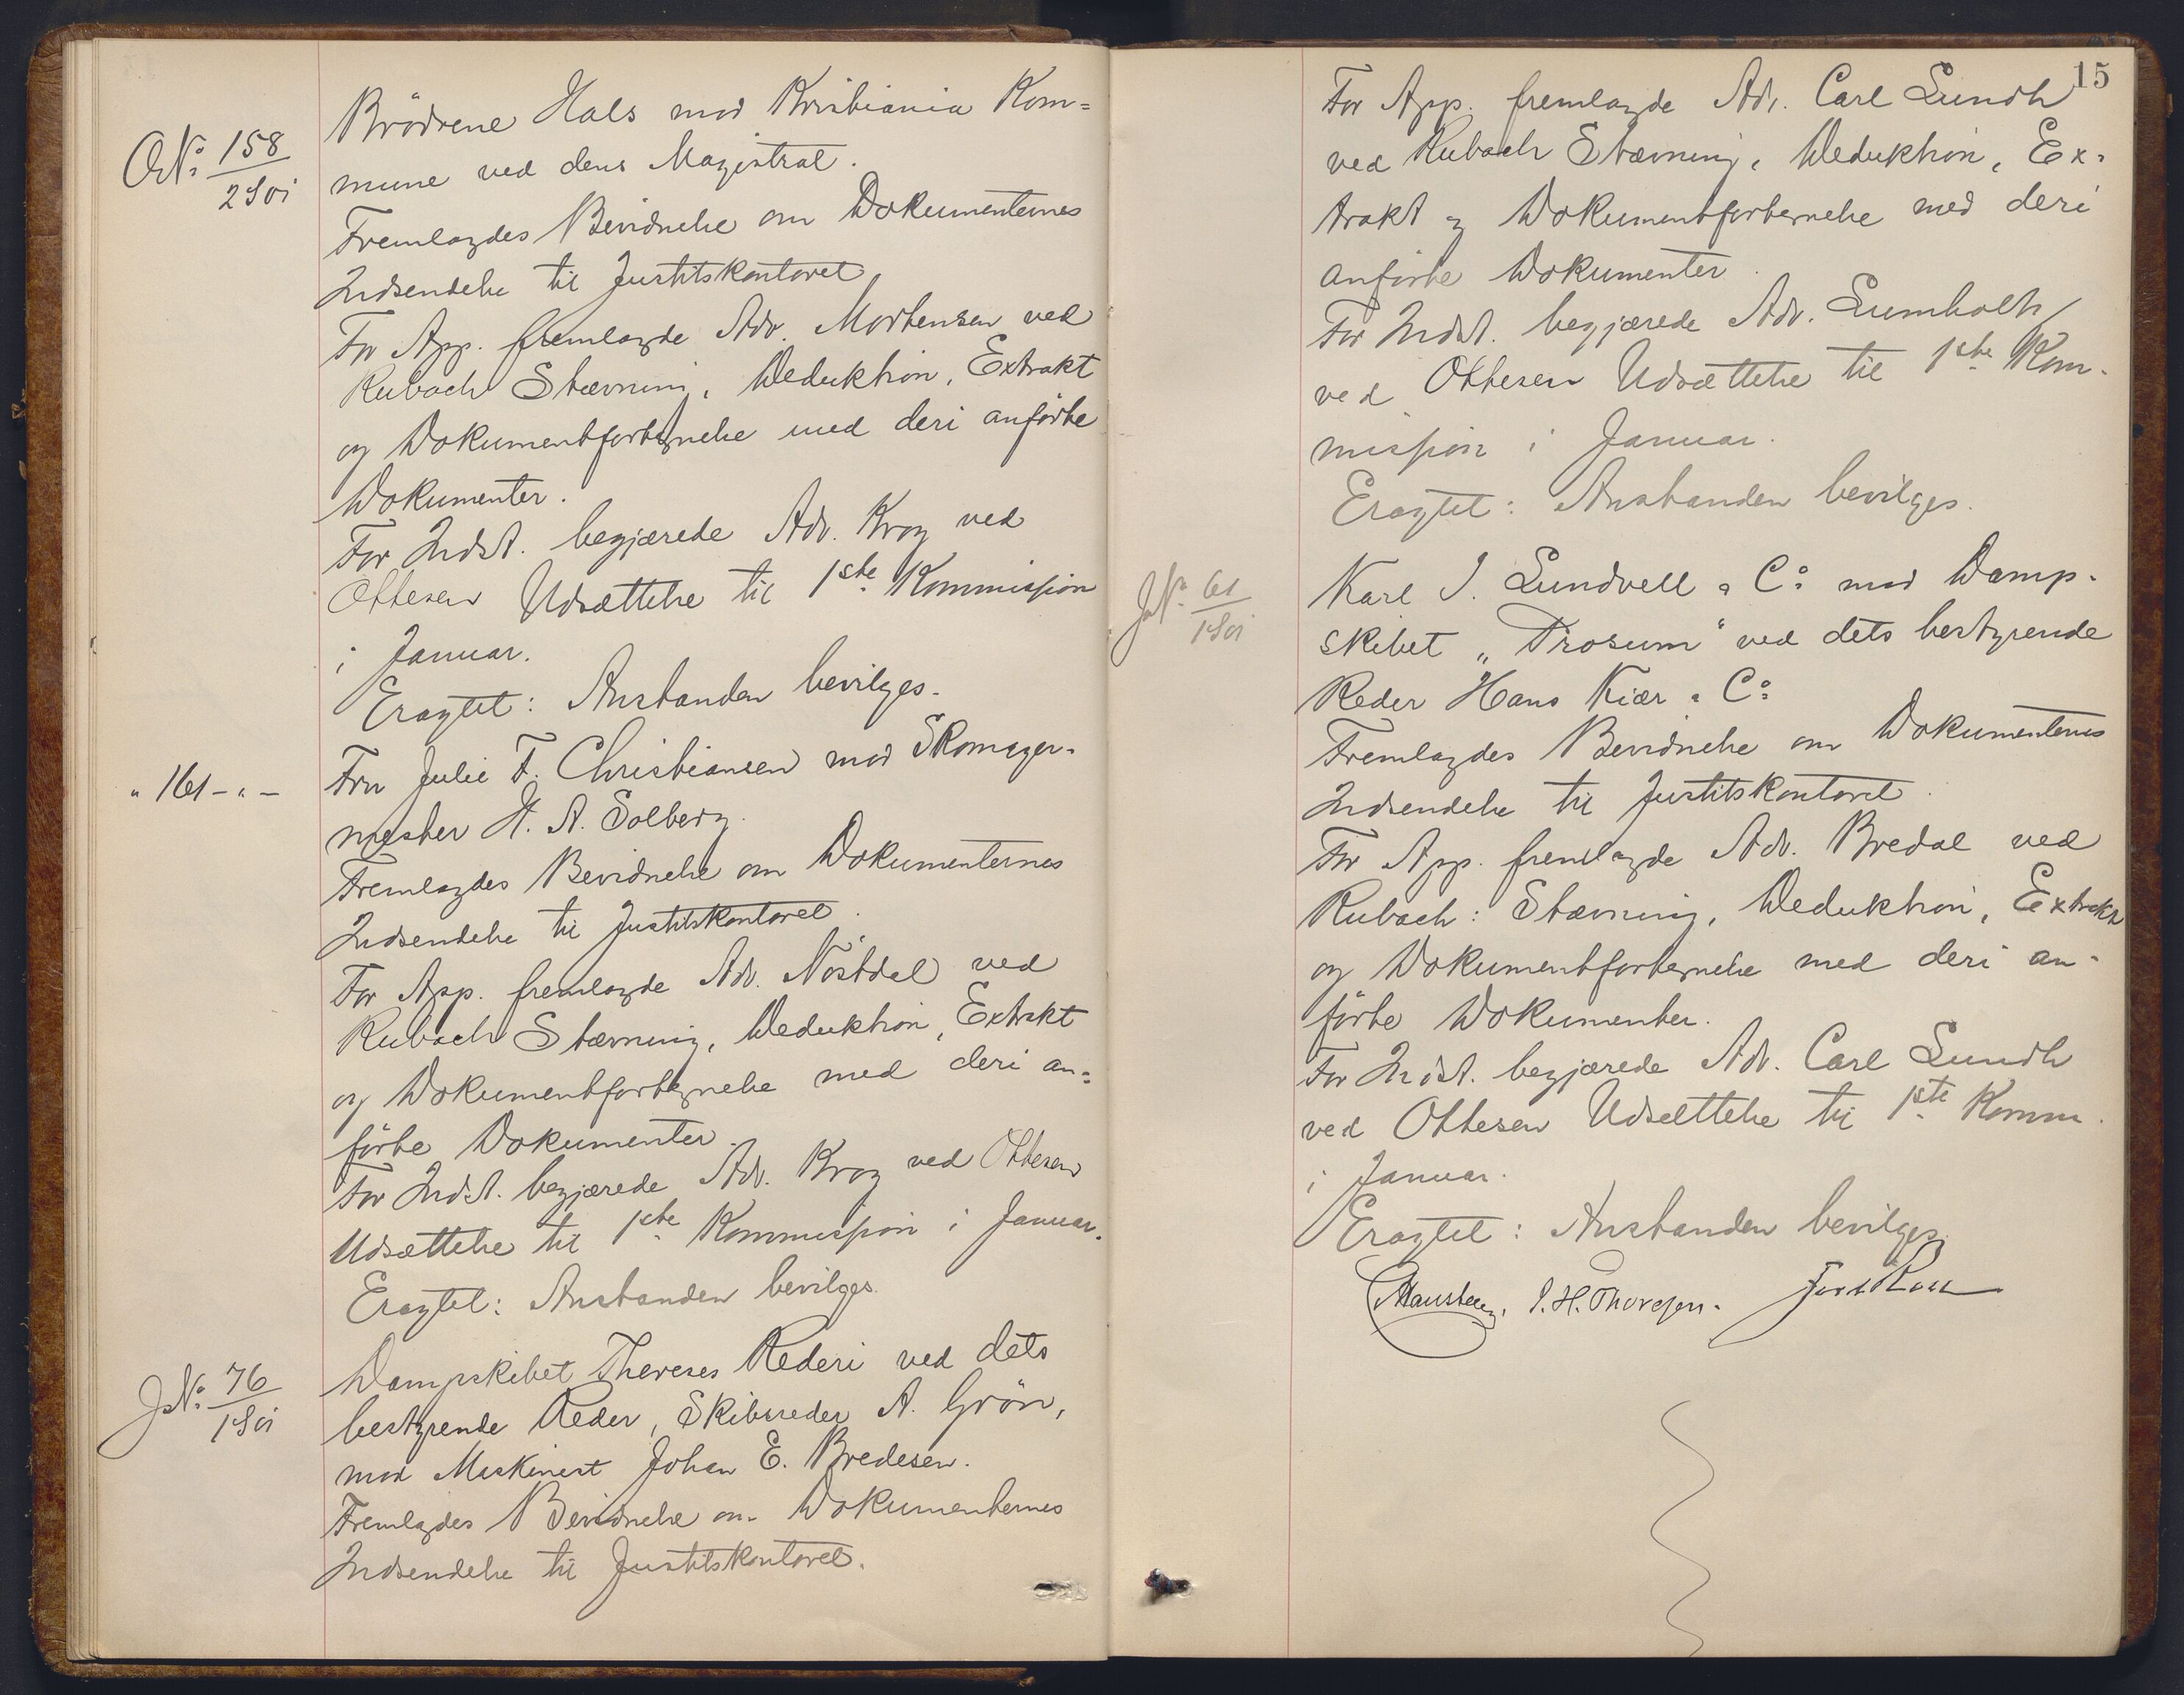 O.No. 158/2 1901
Brødrene Hals mod Kristiania Kom=
mune ved dens Magistrat.
Fremlagdes Bevidnelse om Dokumenternes
Indsendelse til Justitskontoret
For App. fremlagde Adv. Mortensen ved
Rubach Stævning, Deduktion, Extrakt
og Dokumentfortegnelse med deri anførte
Dokumenter.
For Indst. begjærede Adv. Krog ved
Ottesen Udsættelse til 1ste Kommission
i Januar.
Eragtet: Anstanden bevilges.
" 161 - " -
Fru Julie F. Christiansen mod Skomager-
mester H. A. Solberg.
Fremlagdes Bevidnelse om Dokumenternes
Indsendelse til Justitskontoret.
For App. fremlagde Adv. Nöstdal ved
Rubach Stævning, Deduktion, Extrakt
og Dokumentfortegnelse med deri an=
førte Dokumenter.
For Indst. begjærede Adv. Krog ved Ottesen
Udsættelse til 1ste Kommission i Januar.
Eragtet: Anstanden bevilges.
J.No. 76/1 1901
Dampskibet Thereses Rederi ved dets
bestyrende Reder, Skibsreder A. Grön,
mod Maskinist Johan E. Bredesen.
Fremlagdes Bevidnelse om Dokumenternes
Indsendelse til Justitskontoret.
15
For App. fremlagde Adv. Carl Lundh
ved Rubach Stævning, Deduktion, Ex-
trakt og Dokumentfortegnelse med deri
anførte Dokumenter.
For Indst. begjærede Adv. Lumholtz
ved Ottesen Udsættelse til 1ste Kom-
mission i Januar.
Eragtet: Anstanden bevilges.
J.No. 61/1 1901
Karl J. Lundvall & Co. mod Damp-
skibet "Trosum" ved dets bestyrende
Reder Hans Kiær & Co.
Fremlagdes Bevidnelse om Dokumenternes
Indsendelse til Justitskontoret.
For App. fremlagde Adv. Bredal ved
Rubach: Stævning, Deduktion, Extrakt
og Dokumentfortegnelse med deri an-
førte Dokumenter.
For Indst. begjærede Adv. Carl Lundh
ved Ottesen Udsættelse til 1ste Komm.
i Januar.
Eragtet: Anstanden bevilges.
J. H. Thoresen.